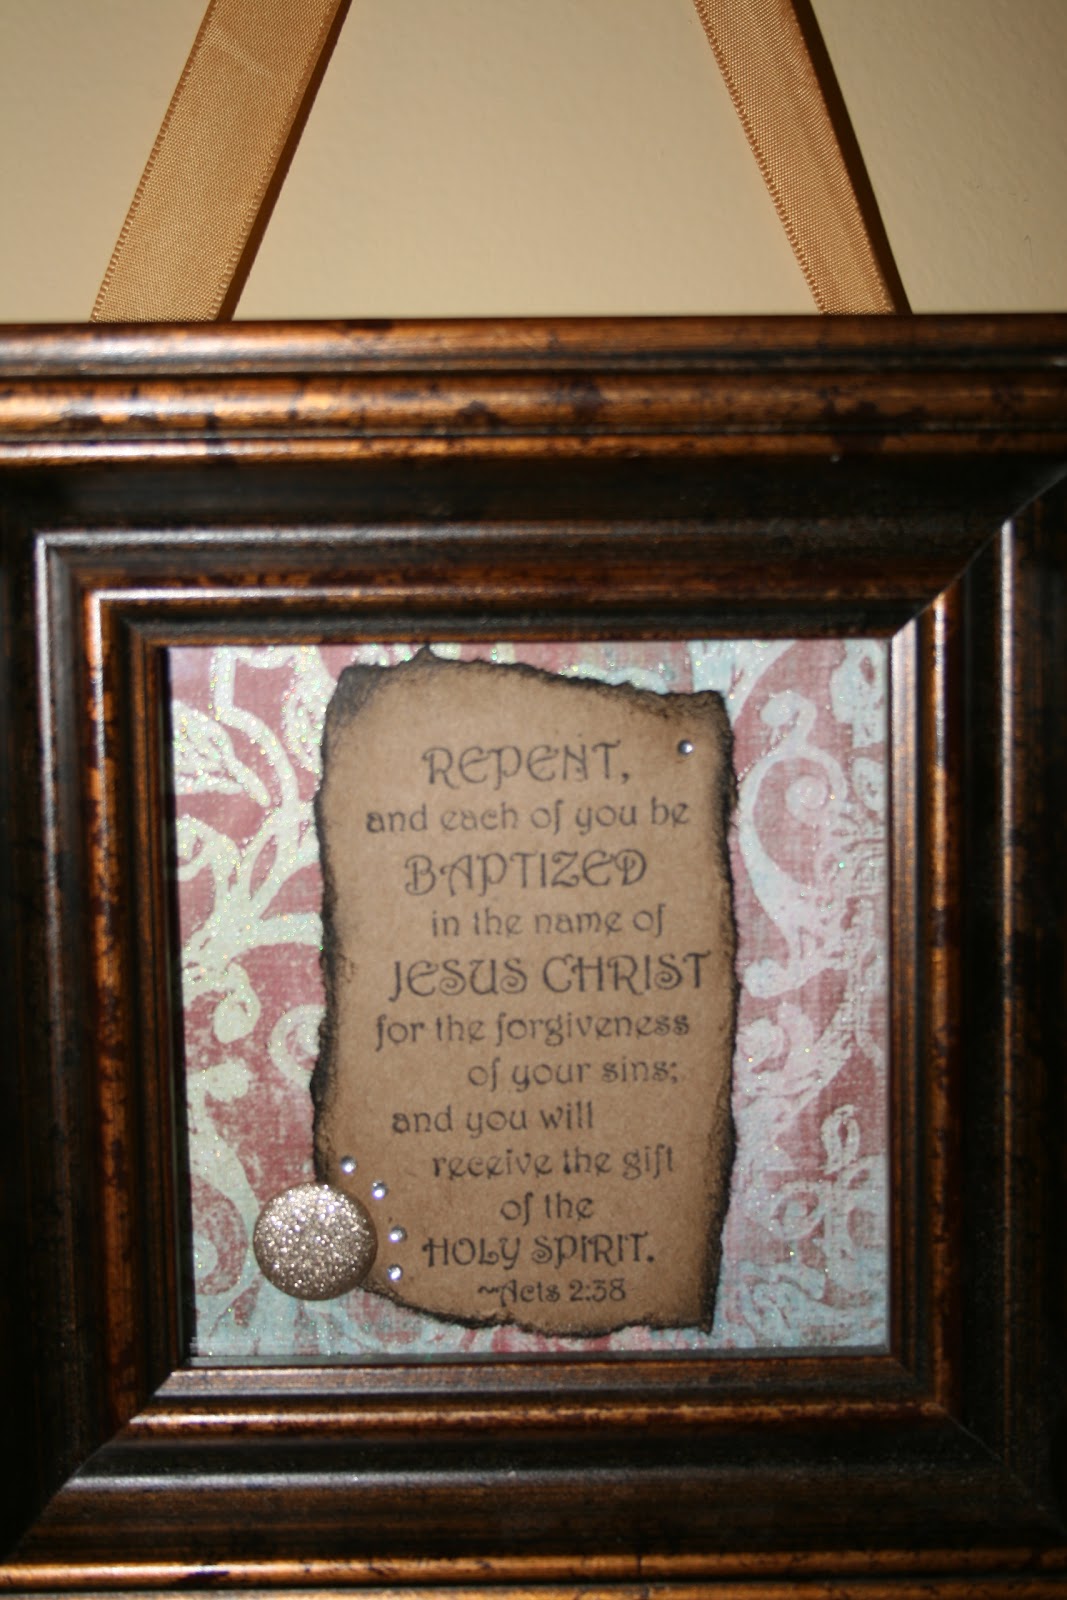 REPENT,
and each of you be
BAPTIZED
in the name of
JESUS CHRIST
for the forgiveness
of your sins;
and you will
receive the gift
of the
HOLY SPIRIT.
~Acts 2:38